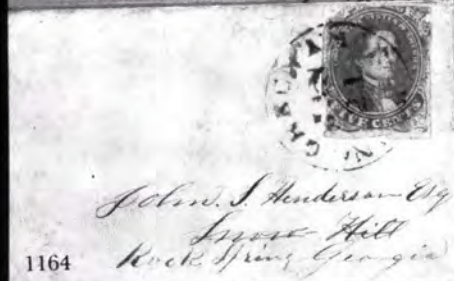 FIVE CENTS
John. S. Henderson Esq
Snow Hill
Rock Spring Georgia
1164